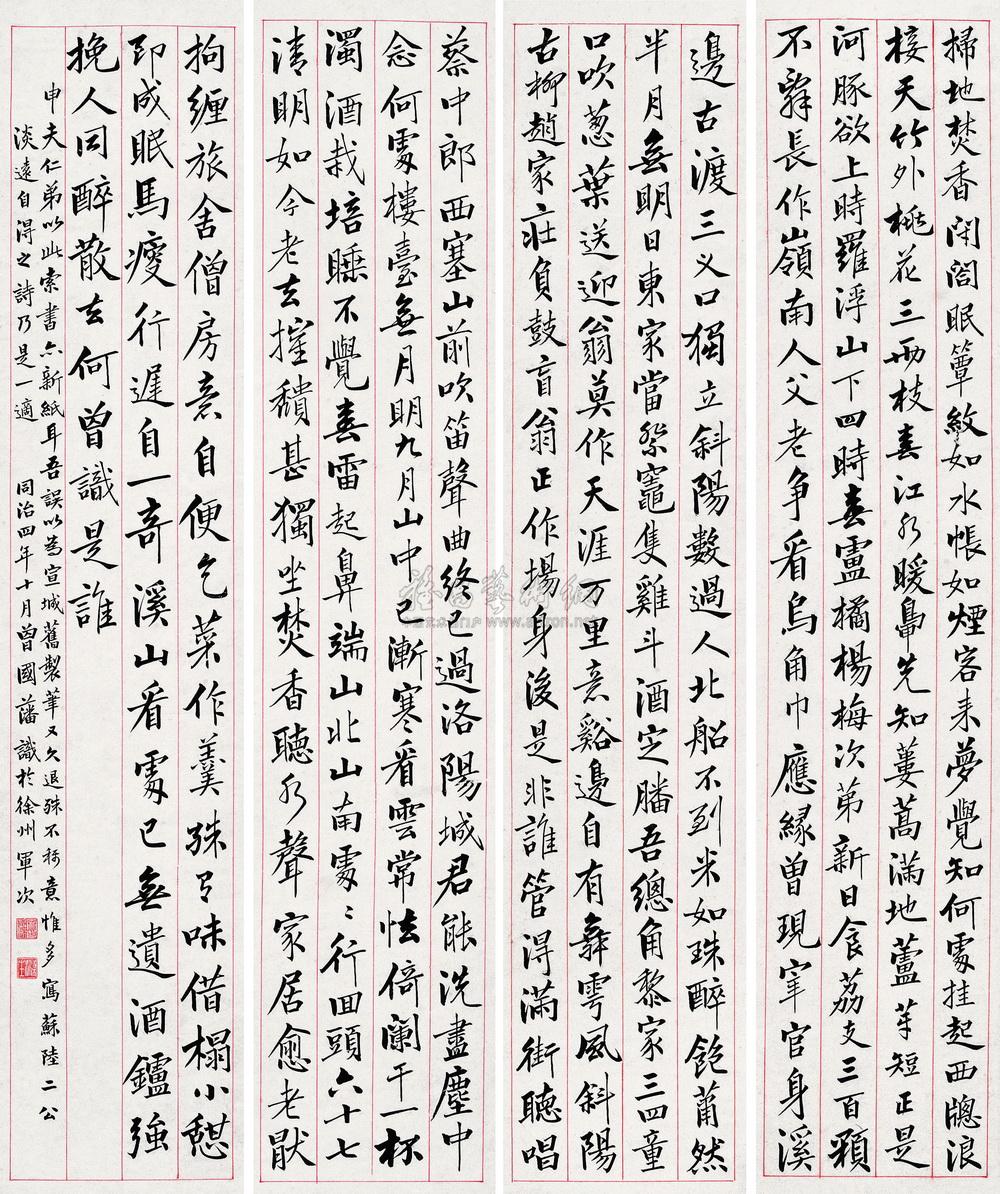 掃地焚香閉閤眠簟紋如水帳如煙客来夢覺知何處挂起西牕浪
接天竹外桃花三兩枝春江水暖鴨先知蔞蒿滿地蘆芽短正是
河豚欲上時羅浮山下四時春盧橘楊梅次第新日食荔支三百顆
不辭長作嶺南人父老争看烏角巾應緣曾現宰官身溪
邊古渡三乂口獨立斜陽數過人北船不到米如珠醉飽蕭然
半月無明日東家當祭竈隻雞斗酒定膰吾總角黎家三四童
口吹葱葉送迎翁莫作天涯万里意谿邊自有舞雩風斜陽
古柳趙家莊負鼓盲翁正作場身後是非誰管得滿街聽唱
蔡中郎西塞山前吹笛聲曲終已過洛陽城君能洗盡塵中
念何處樓臺無月明九月山中已漸寒看雲常怯倚闌干一杯
濁酒栽培睡不覺春雷起鼻端山北山南處〻行回頭六十七
清明如今老去摧頹甚獨坐焚香聽水聲家居愈老厭
拘纏旅舍僧房意自便乞菜作羹殊有味借榻小憇
即成眠馬瘦行遲自一奇溪山看處已無遺酒鑪強
挽人同醉散去何曾識是誰
申夫仁弟以此索書亦新紙耳吾誤以為宣城舊製筆又久退殊不稱意惟多寫蘇陸二公
淡遠自得之詩乃是一適 同治四年十月曾國藩識於徐州軍次
雅昌藝術網
www.artron.net